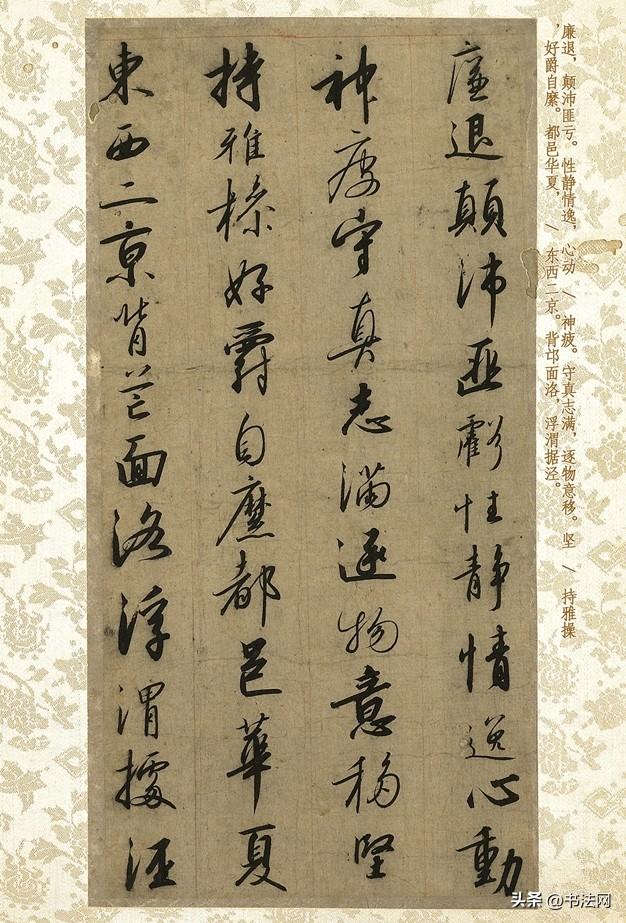 廉退，颠沛匪亏。性静情逸，心动 / 神疲。守真志满，逐物意移。坚 / 持雅操
，好爵自縻。都邑华夏， / 东西二京。背邙面洛，浮渭据泾。
廉退顛沛匪虧性靜情逸心動
神疲守真志滿逐物意移堅
持雅操好爵自縻都邑華夏
東西二京背芒面洛浮渭據涇
头条 @书法网